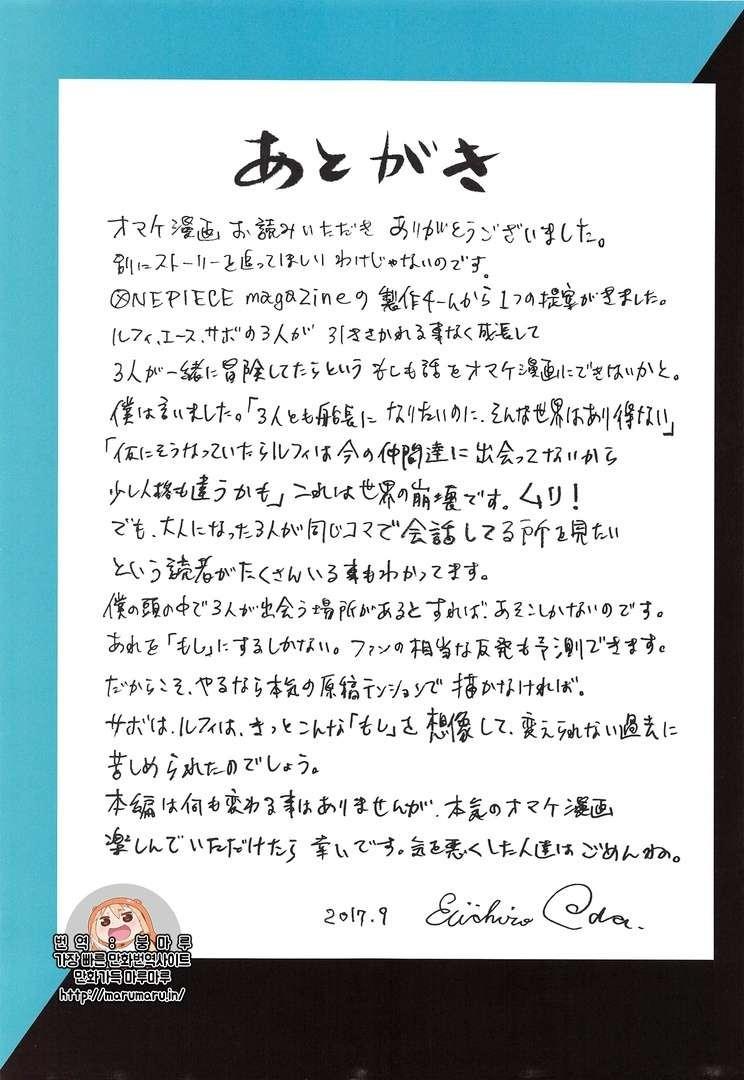 あとがき
オマケ漫画 お読みいただき ありがとうございました。
別にストーリーを追ってほしい わけじゃないのです。
ONEPIECE magazineの 製作チームから 1つの提案がきました。
ルフィ、エース、サボの3人が 引きさかれる事なく成長して
3人が一緒に冒険してたらという もしも話をオマケ漫画にできないかと。
僕は言いました。「3人とも船長に なりたいのに、そんな世界はあり得ない」
「仮にそうなっていたらルフィは今の仲間達に出会ってないから
少し人格も違うかも」これは世界の崩壊です。ムリ!
でも、大人になった3人が同じコマで会話してる所を見たい
という読者がたくさんいる事もわかってます。
僕の頭の中で3人が出会う場所があるとすれば、あそこしかないのです。
あれを「もし」にするしかない。ファンの相当な反発も予測できます。
だからこそ、やるなら本気の原稿テンションで 描かなければ。
サボは、ルフィは、きっとこんな「もし」を 想像して、変えられない過去に
苦しめられたのでしょう。
本編は何も変わる事はありませんが、本気のオマケ漫画
楽しんでいただけたら 幸いです。気を悪くした人達は ごめんね。
2017.9 Eiichiro Oda.
번역 : 붕마루
가장 빠른 만화번역사이트
만화가득 마루마루
http://marumaru.in/